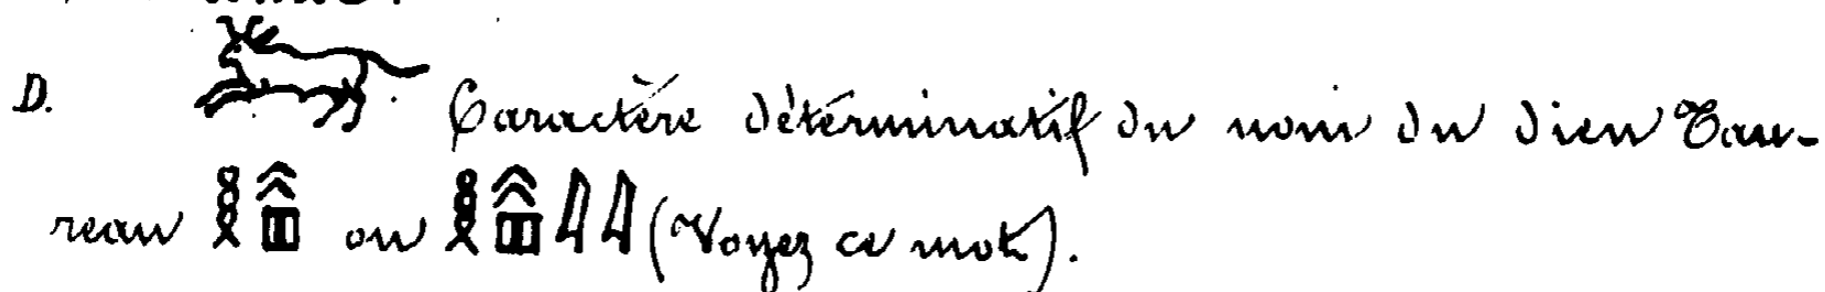 D. 𓃒 Caractère déterminatif du nom du dieu Tau-
reau 𓎛𓊪 ou 𓎛𓊪𓇋𓇋 (Voyez ce mot).